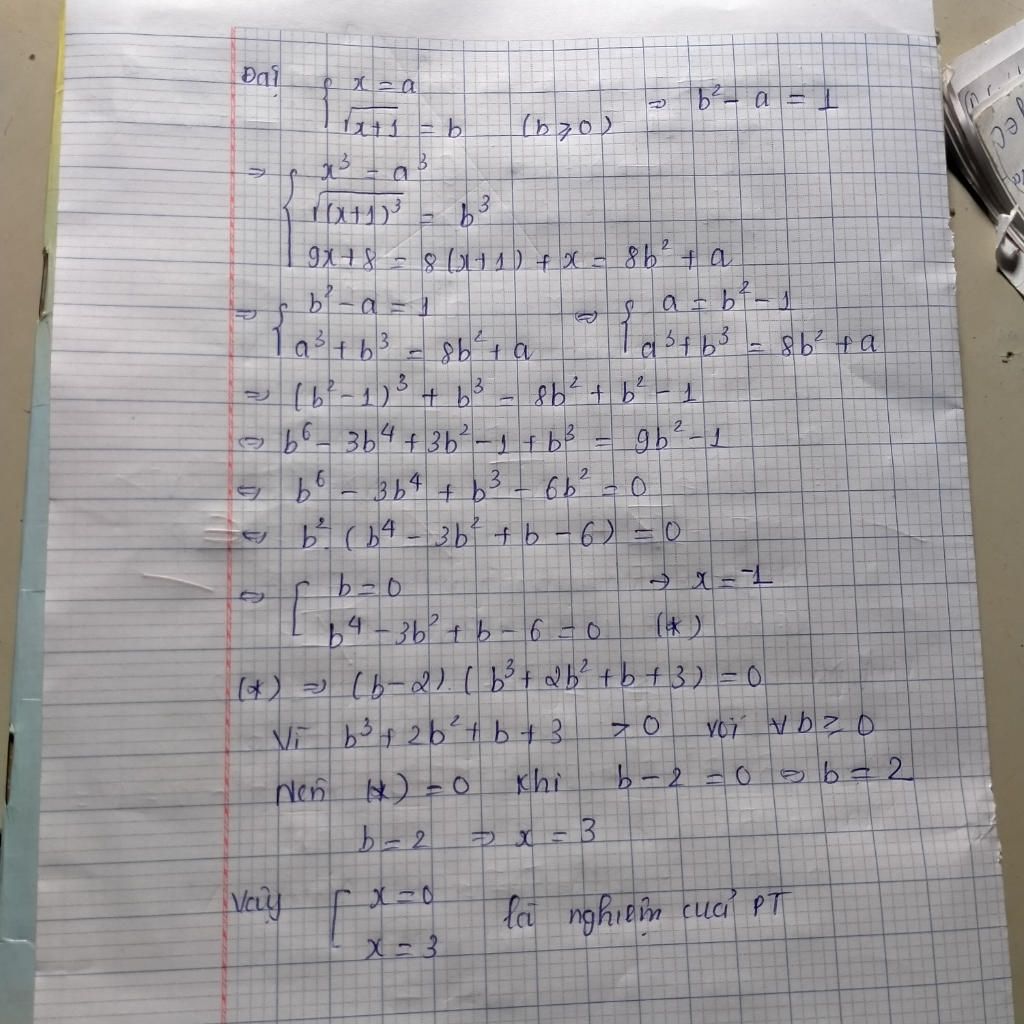 Đặt { x = a
√x+1 = b (b ≥ 0) ⇒ b² - a = 1
⇒ { x³ = a³
√(x+1)³ = b³
9x+8 = 8(x+1) + x = 8b² + a
⇒ { b² - a = 1 ⇔ { a = b² - 1
a³ + b³ = 8b² + a a³ + b³ = 8b² + a
⇒ (b² - 1)³ + b³ = 8b² + b² - 1
⇔ b⁶ - 3b⁴ + 3b² - 1 + b³ = 9b² - 1
⇔ b⁶ - 3b⁴ + b³ - 6b² = 0
⇔ b².(b⁴ - 3b² + b - 6) = 0
⇔ [ b = 0 → x = -1
b⁴ - 3b² + b - 6 = 0 (*)
(*) ⇒ (b - 2).(b³ + 2b² + b + 3) = 0
Vì b³ + 2b² + b + 3 > 0 với ∀ b ≥ 0
Nên (*) = 0 khi b - 2 = 0 ⇔ b = 2
b = 2 ⇒ x = 3
Vậy [ x = 0
x = 3 là nghiệm của PT